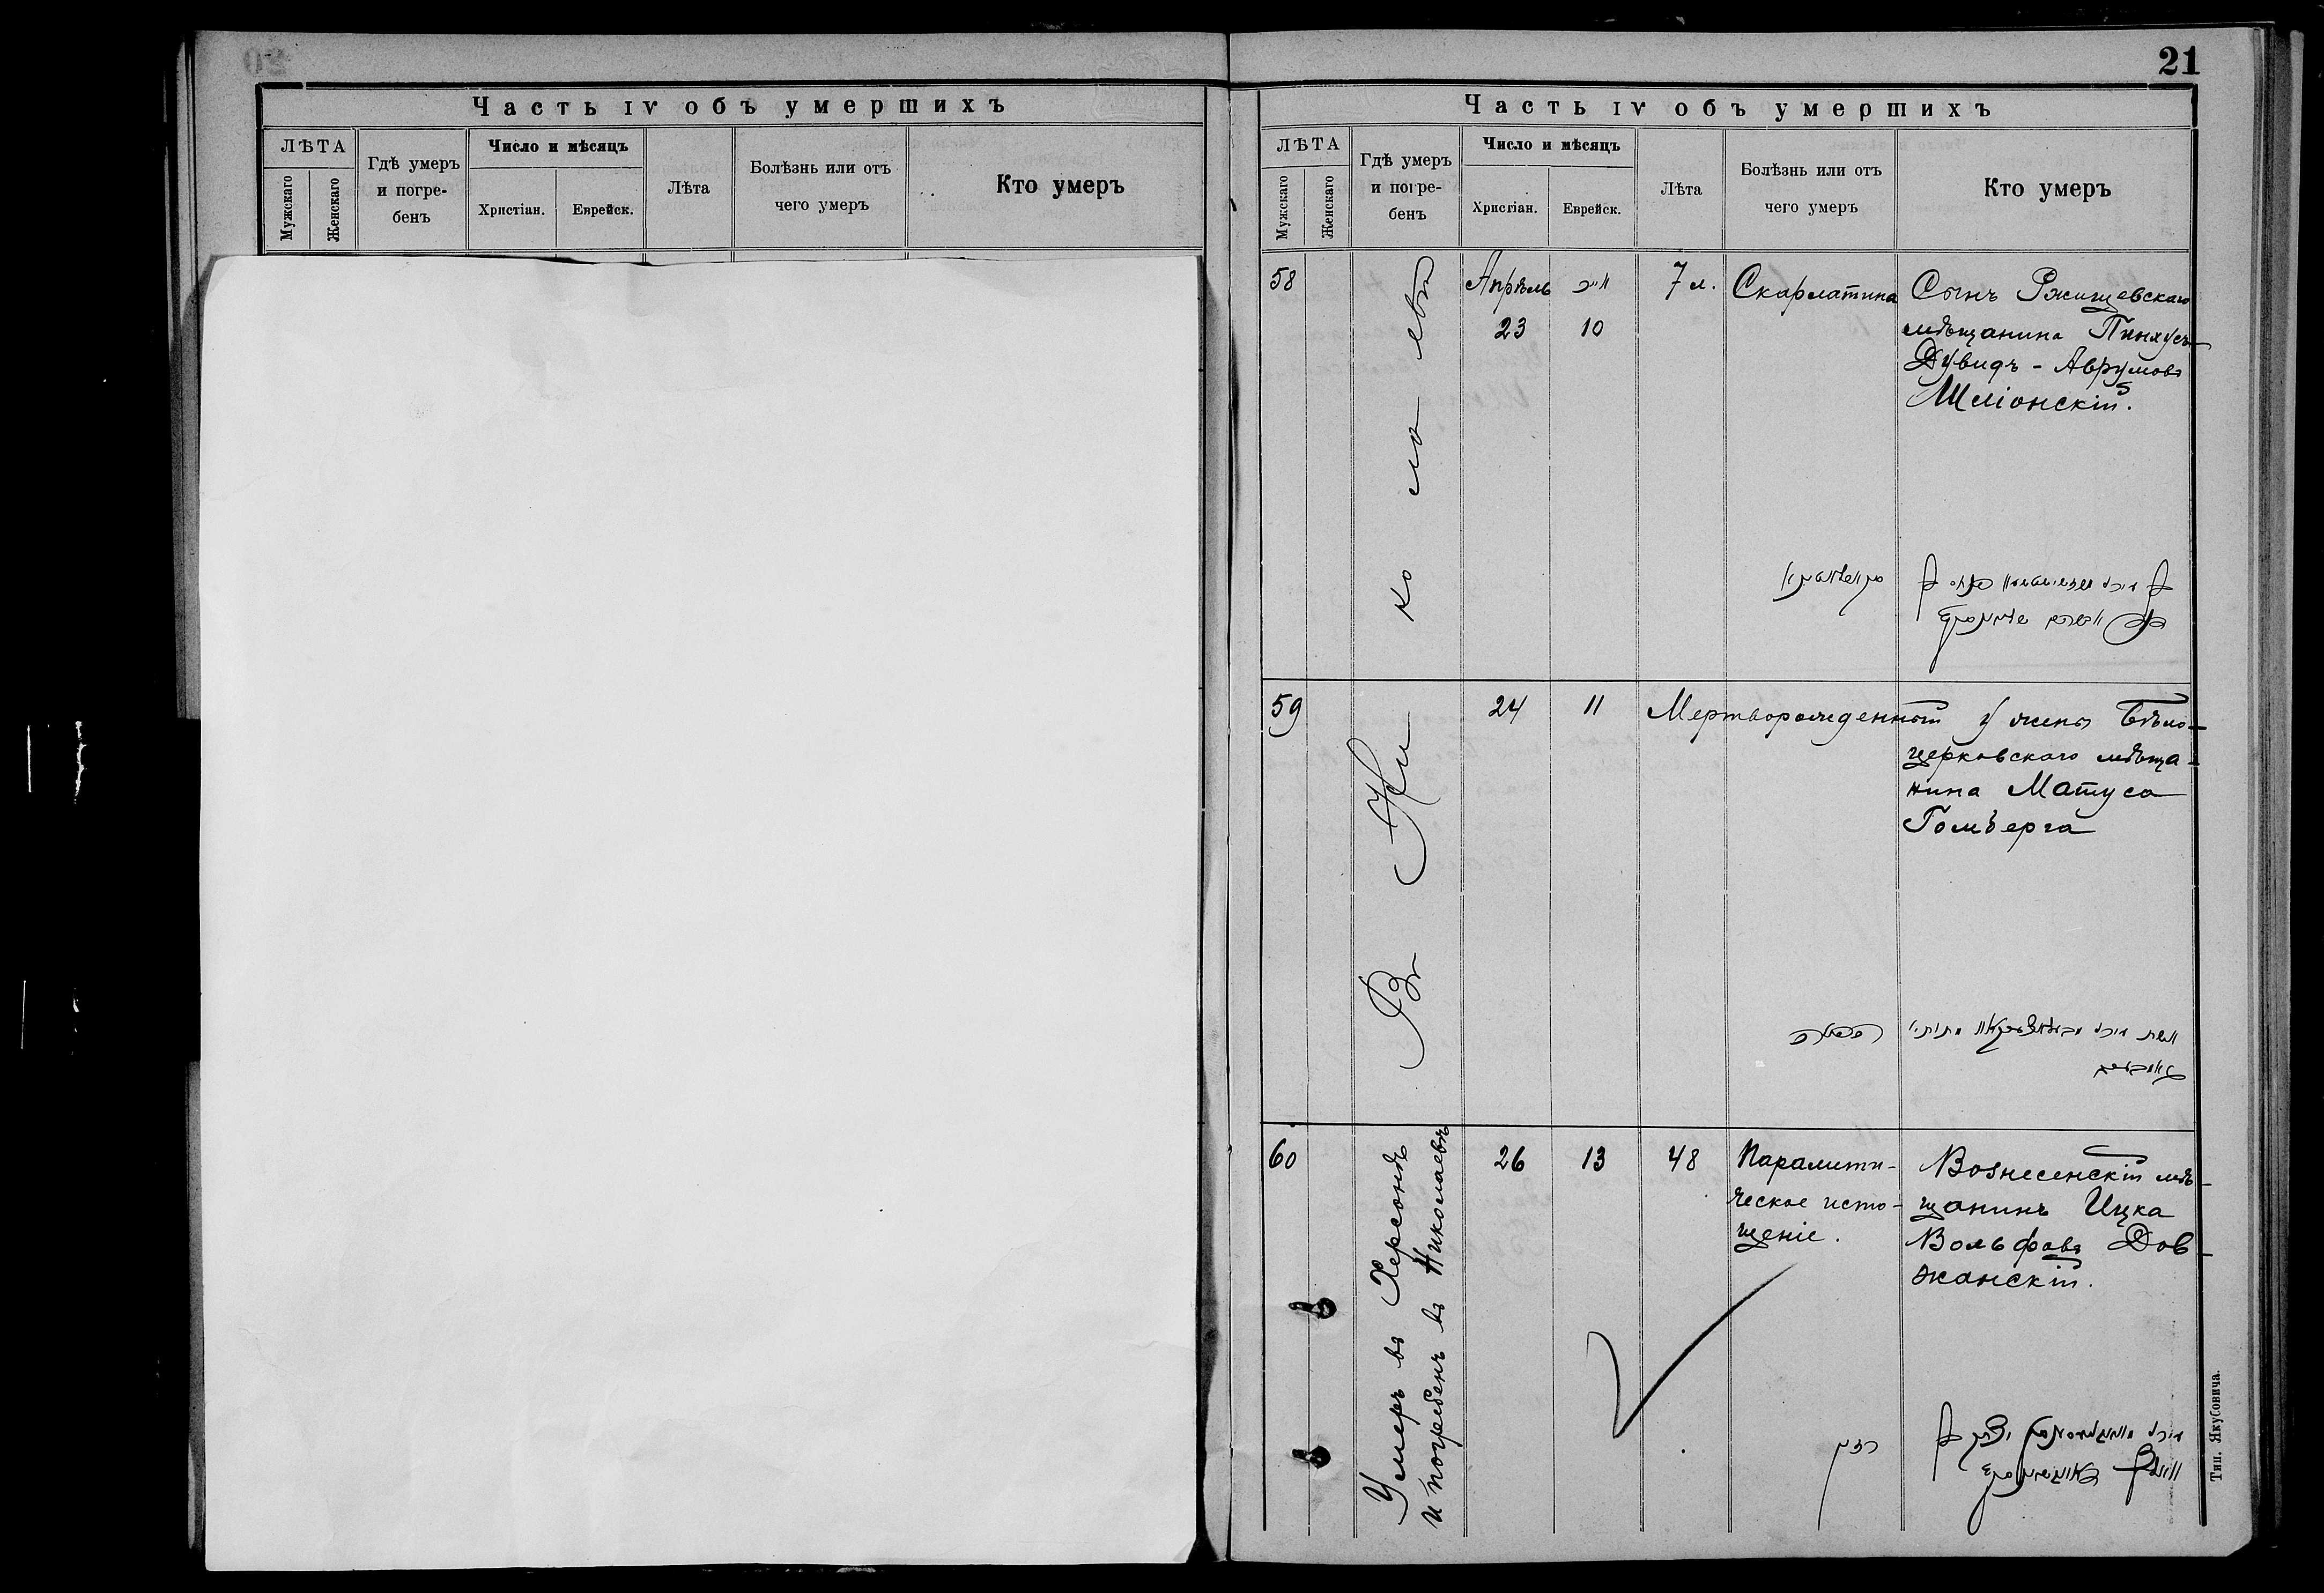 21
Часть IV объ умершихъ
ЛѢТА
Мужскаго
Женскаго
Гдѣ умеръ
и погре-
бенъ
Число и мѣсяцъ
Христіан.
Еврейск.
Лѣта
Болѣзнь или отъ
чего умеръ
Кто умеръ
Часть IV объ умершихъ
ЛѢТА
Мужскаго
Женскаго
Гдѣ умеръ
и погре-
бенъ
Число и мѣсяцъ
Христіан.
Еврейск.
Лѣта
Болѣзнь или отъ
чего умеръ
Кто умеръ
Въ Николаевѣ
58
Апрѣль
23
אייר
10
7 л.
Скарлатина
Сынъ Ржищевскаго
мѣщанина Пинхусъ-
Дувидъ - Аврумовъ
Шліонскій.
59
24
11
Мертворожденный у жены Бѣло-
церковскаго мѣща-
нина Матуса
Гольберга
60
Умеръ въ Херсонѣ
и погребенъ въ Николаевѣ
26
13
48
Паралити-
ческое исто-
щеніе.
Вознесенскій мѣ-
щанинъ Ицка
Вольфовъ Дов-
жанскій.
Тип. Якубовича.